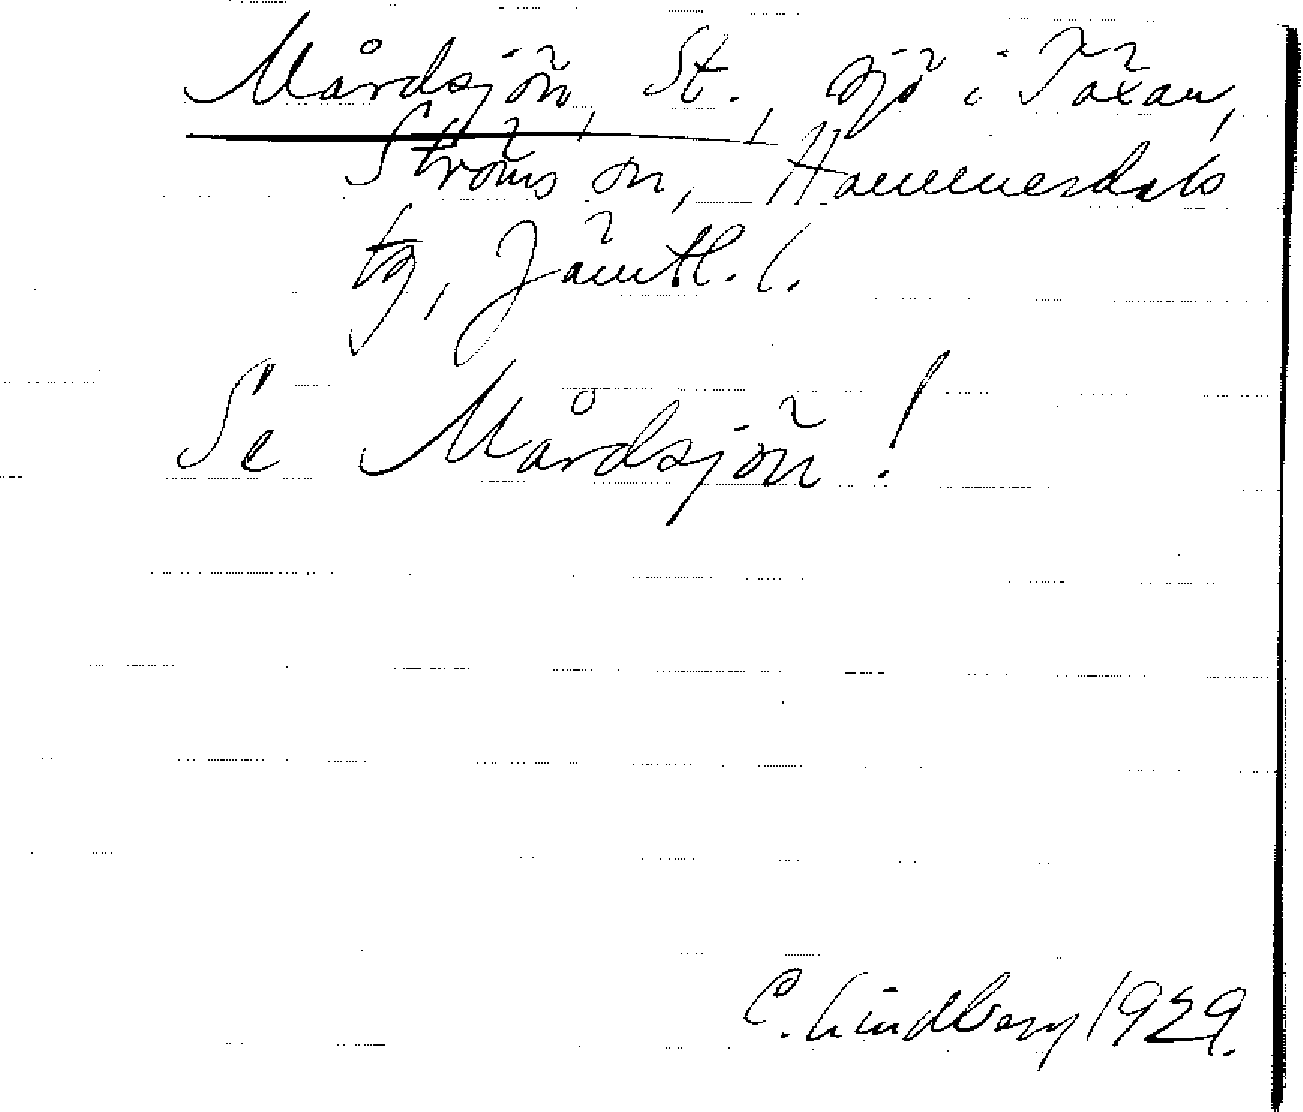 Mårdsjön, St., sjö i Täxan,
Ströms sn, Hammerdals
tg, Jämtl. l.
Se Mårdsjön!
C. Lindberg 1929.